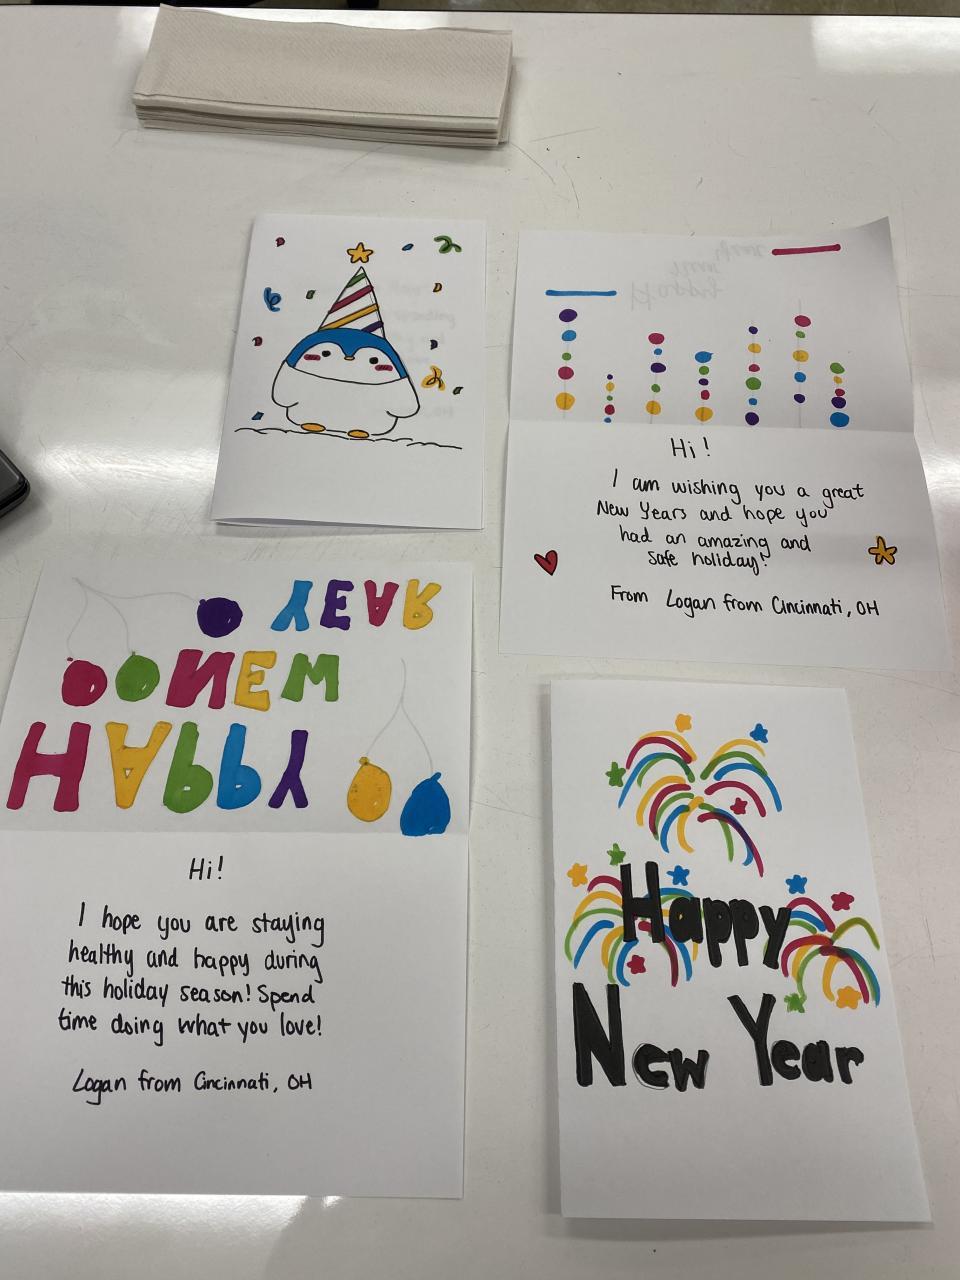 Happy
new
year
Hi!
I am wishing you a great
New Years and hope you
had an amazing and
safe holiday!
From Logan from Cincinnati, OH
HAPPY
NEW
YEAR
Hi!
I hope you are staying
healthy and happy during
this holiday season! Spend
time doing what you love!
Logan from Cincinnati, OH
Happy
New Year